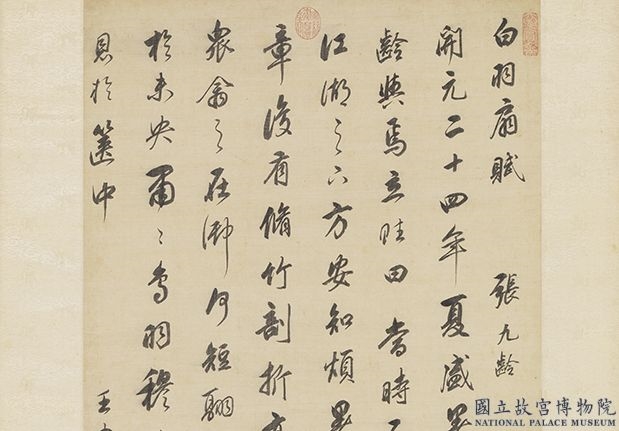 白羽扇賦 張九齡
開元二十四年夏盛
齡與焉立賦曰當時
江湖之下方安知煩暑
章復有脩竹剖析
衆禽之在御何短翮
於未央肅肅鳥羽穆
恩於篋中 王
國立故宮博物院
NATIONAL PALACE MUSEUM